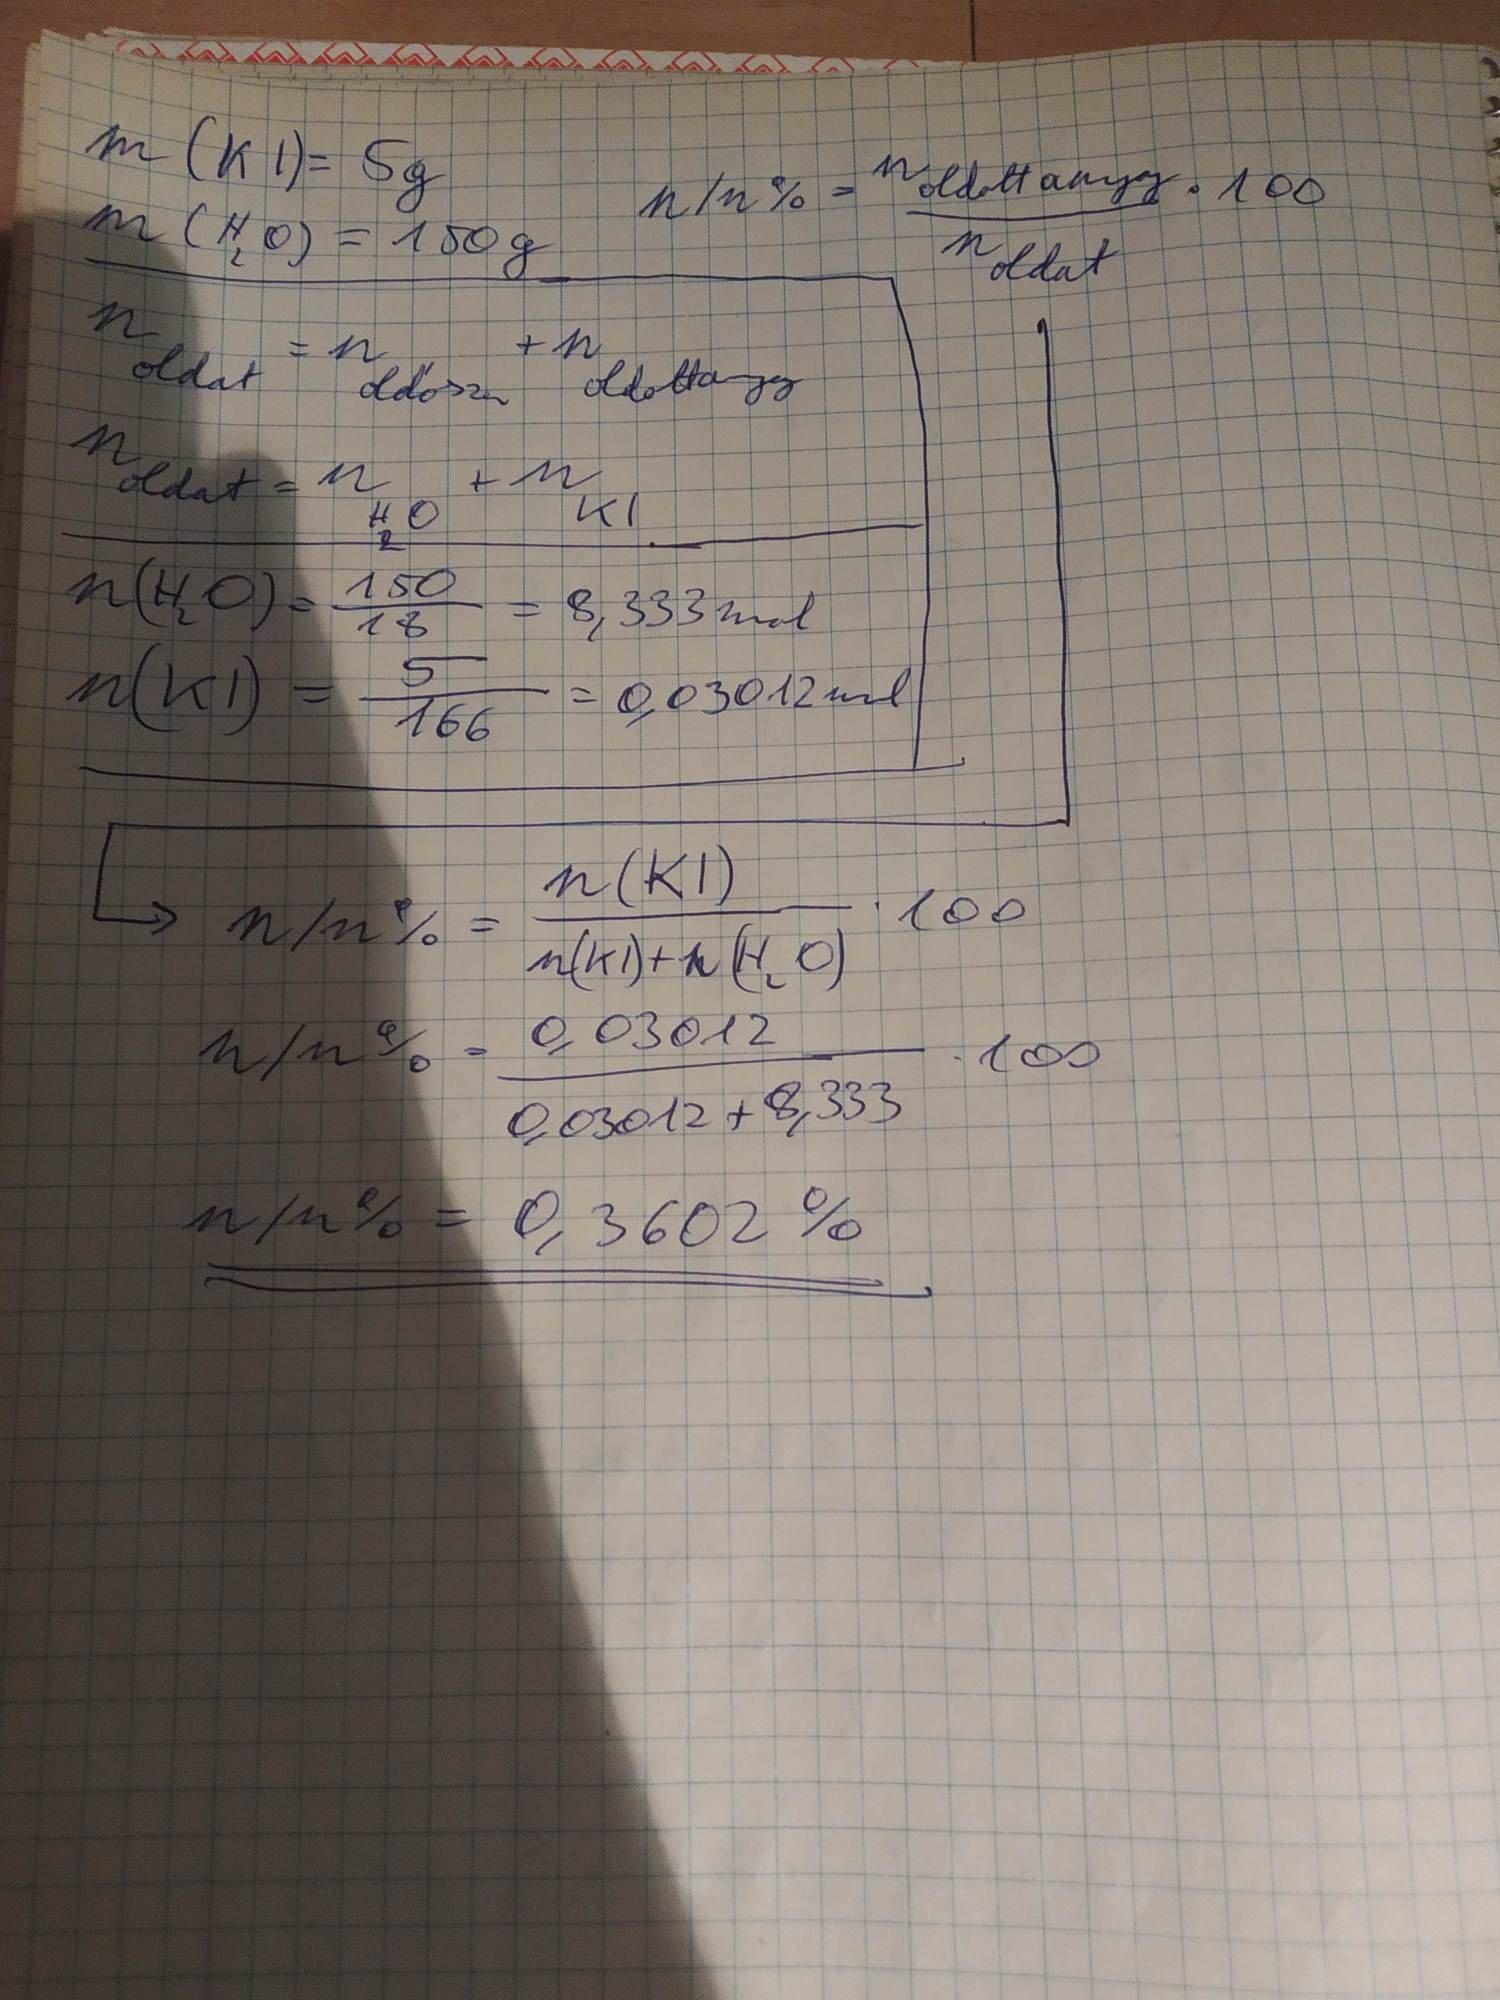 m (KI) = 5g
m (H₂O) = 150g
n/n% = n oldottanyag / n oldat · 100
n oldat = n oldósz + n oldottanyag
n oldat = n H₂O + n KI
n(H₂O) = 150/18 = 8,333 mol
n(KI) = 5/166 = 0,03012 mol
n/n% = n(KI) / n(KI)+n(H₂O) · 100
n/n% = 0,03012 / 0,03012+8,333 · 100
n/n% = 0,3602 %